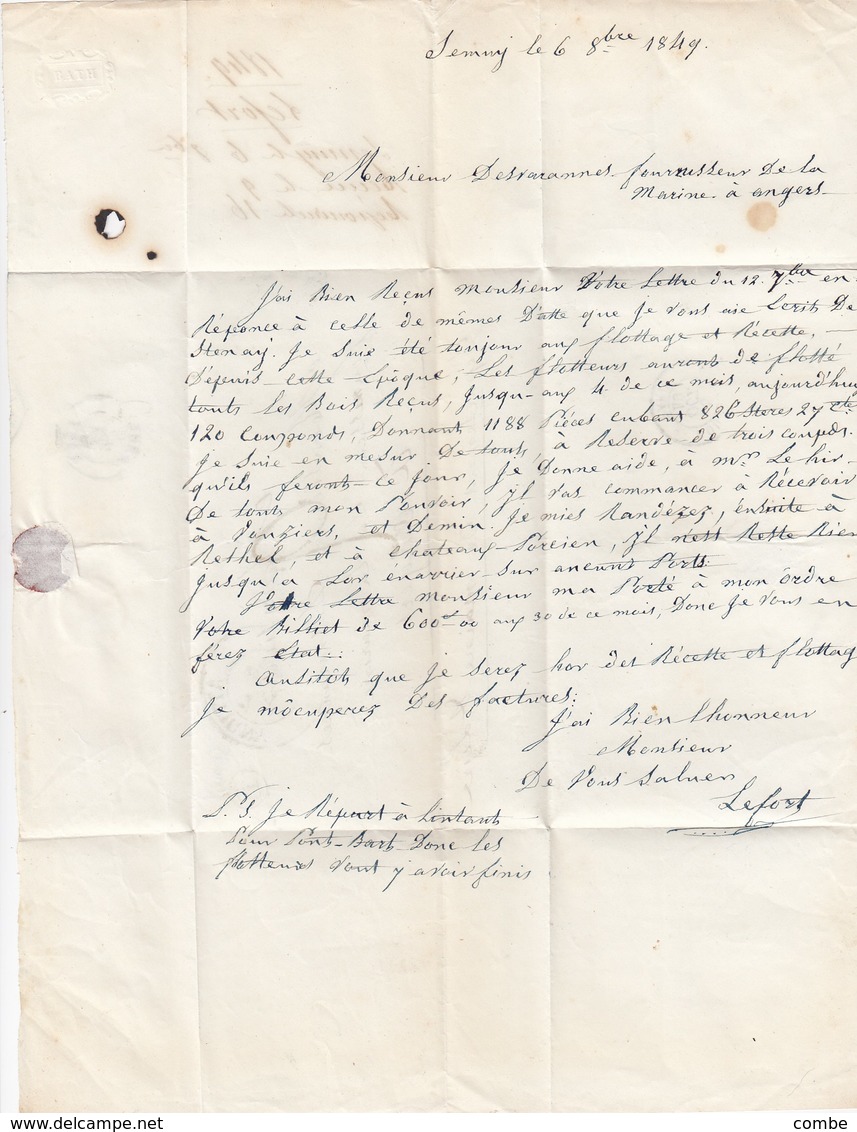 Semuy le 6 8bre 1849.
Monsieur Desvarannes fournisseur De la
Marine à angers
J'ai Bien Reçus Monsieur Votre Lettre du 12. 7bre en
Réponce à celle de mêmes D'atte que je vous aie Ecrit De
Stenay. Je Suie été toujour aux flottage et Récette,
D'épuis cette Epôque; Les flotteurs auront de flotté
touts les Bois Reçus, Jusqu-aux 4 de ce mois, aujourd'huy
120 Couponds, Donnant 1188 Piéces cubant 826 Steres 27 cte
je Suie en mesur De touts, à Reserve de trois coupds.
qu'ils feront ce jour, je Donne aide, à mr. Le hir
De touts mon Pouvoir, jl vas commancer à Récevoir
à Vouziers, et Demin. Je mies Randézez, ensuite à
Rethel, et à Chateaux-Porcien, jl nest Reste Rien
Jusqu'a Lor énarrier sur aucunt Ports.
Votre Lettre monsieur ma Porté à mon ôrdre
Votre Billiet de 600 00 aux 30 de ce mois, Donc je Vous en
férez Etat.
Ausitôt que je serez hor des Récette et flottag
je môcuperez Des factures.
J'ai Bien l'honneur
Monsieur
De Vous Saluer
Lefort
P.S. je Répart à lintant
Pour Pont-Bart Donc les
flotteurs vont y avoir finis
combe